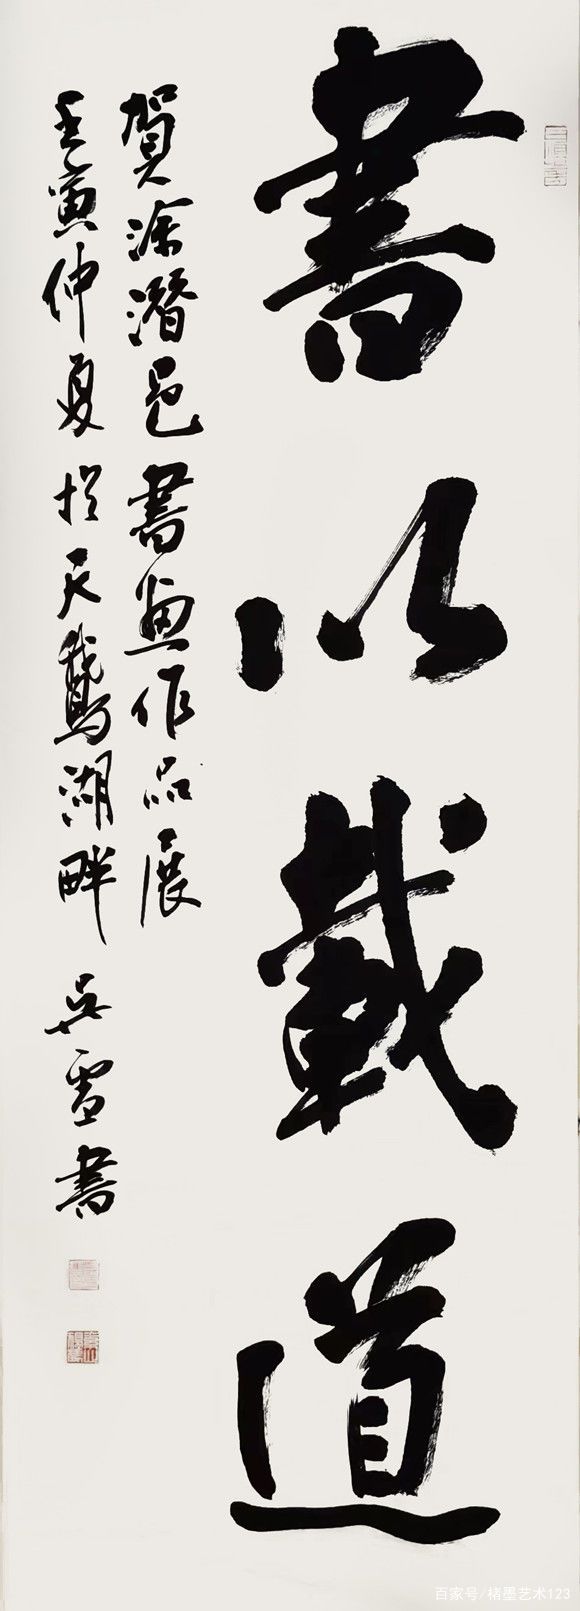 書以載道
賀涂潛邑書畫作品展
壬寅仲夏於天鵝湖畔 吴雪書
百家号/楮墨艺术123